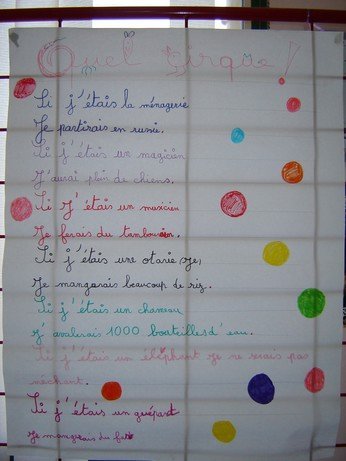 Quel cirque!
Si j'étais la ménagerie
Je partirais en russie.
Si j'étais un magicien
J'aurai plein de chiens.
Si j'étais un musicien
Je ferais du tambourin.
Si j'étais une otarie je
Je mangerais beaucoup de riz.
Si j'étais un chameau
j'avalerais 1000 bouteilles d'eau.
Si j'étais un éléphant je ne serais pas
méchant.
Si j'étais un guépard
Je mangerais du